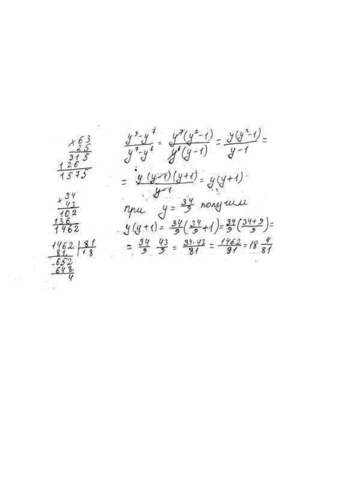 ×63
25
315
126
1575
×34
43
102
136
1462
1462 | 81
81 | 18
-652
648
4
(y⁹-y⁷)/(y⁷-y⁶) = y⁷(y²-1)/y⁶(y-1) = y(y²-1)/(y-1) =
= y(y-1)(y+1)/(y-1) = y(y+1)
при y = 34/9 получим
y(y+1) = 34/9(34/9+1) = 34/9((34+9)/9) =
= 34/9 · 43/9 = 34·43/81 = 1462/81 = 18 4/81